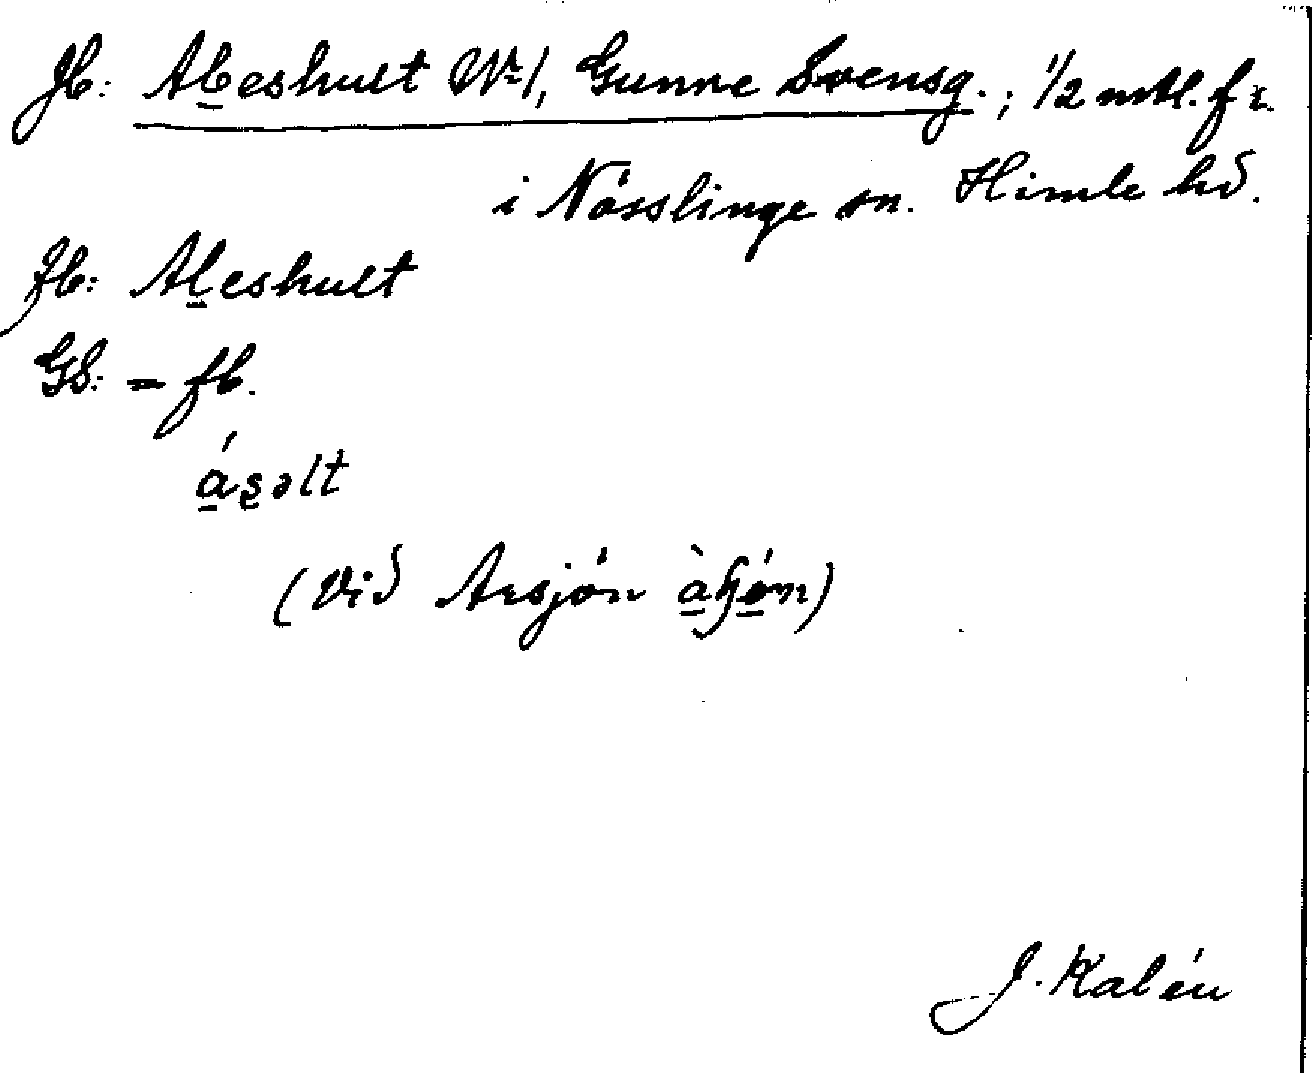 Jb: Abeshult Nr 1, Gunne Svensg.; 1/2 mtl. fr.
i Nösslinge sn. Himle hd.
fb: Aleshult
GS: = fb.
(vid Arsjön
J. Kalén